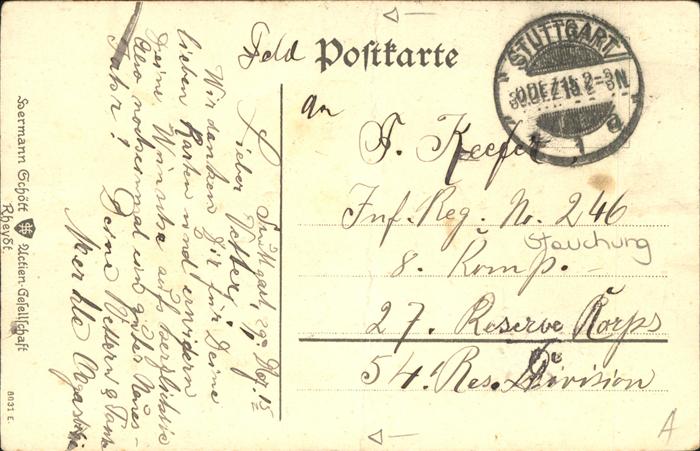 Feld Postkarte
STUTTGART
30.DEZ.15 2-3N
1 a
an
F. Keefer
Inf. Reg. No. 246
Stauchung
8. Komp.
27. Reserve Korps
54. Res. Division
A
Stuttgart, 29. Dez. 15
Lieber Vetter!
Wir danken Dir für Deine
lieben Karten und erwidern
Deine Wünsche aufs herzlichste
Also nochmal ein gutes Neues-
Jahr!
Deine Vettern &
Merkle
Hermann Schött Actien-Gesellschaft
Rheydt.
8031 E.